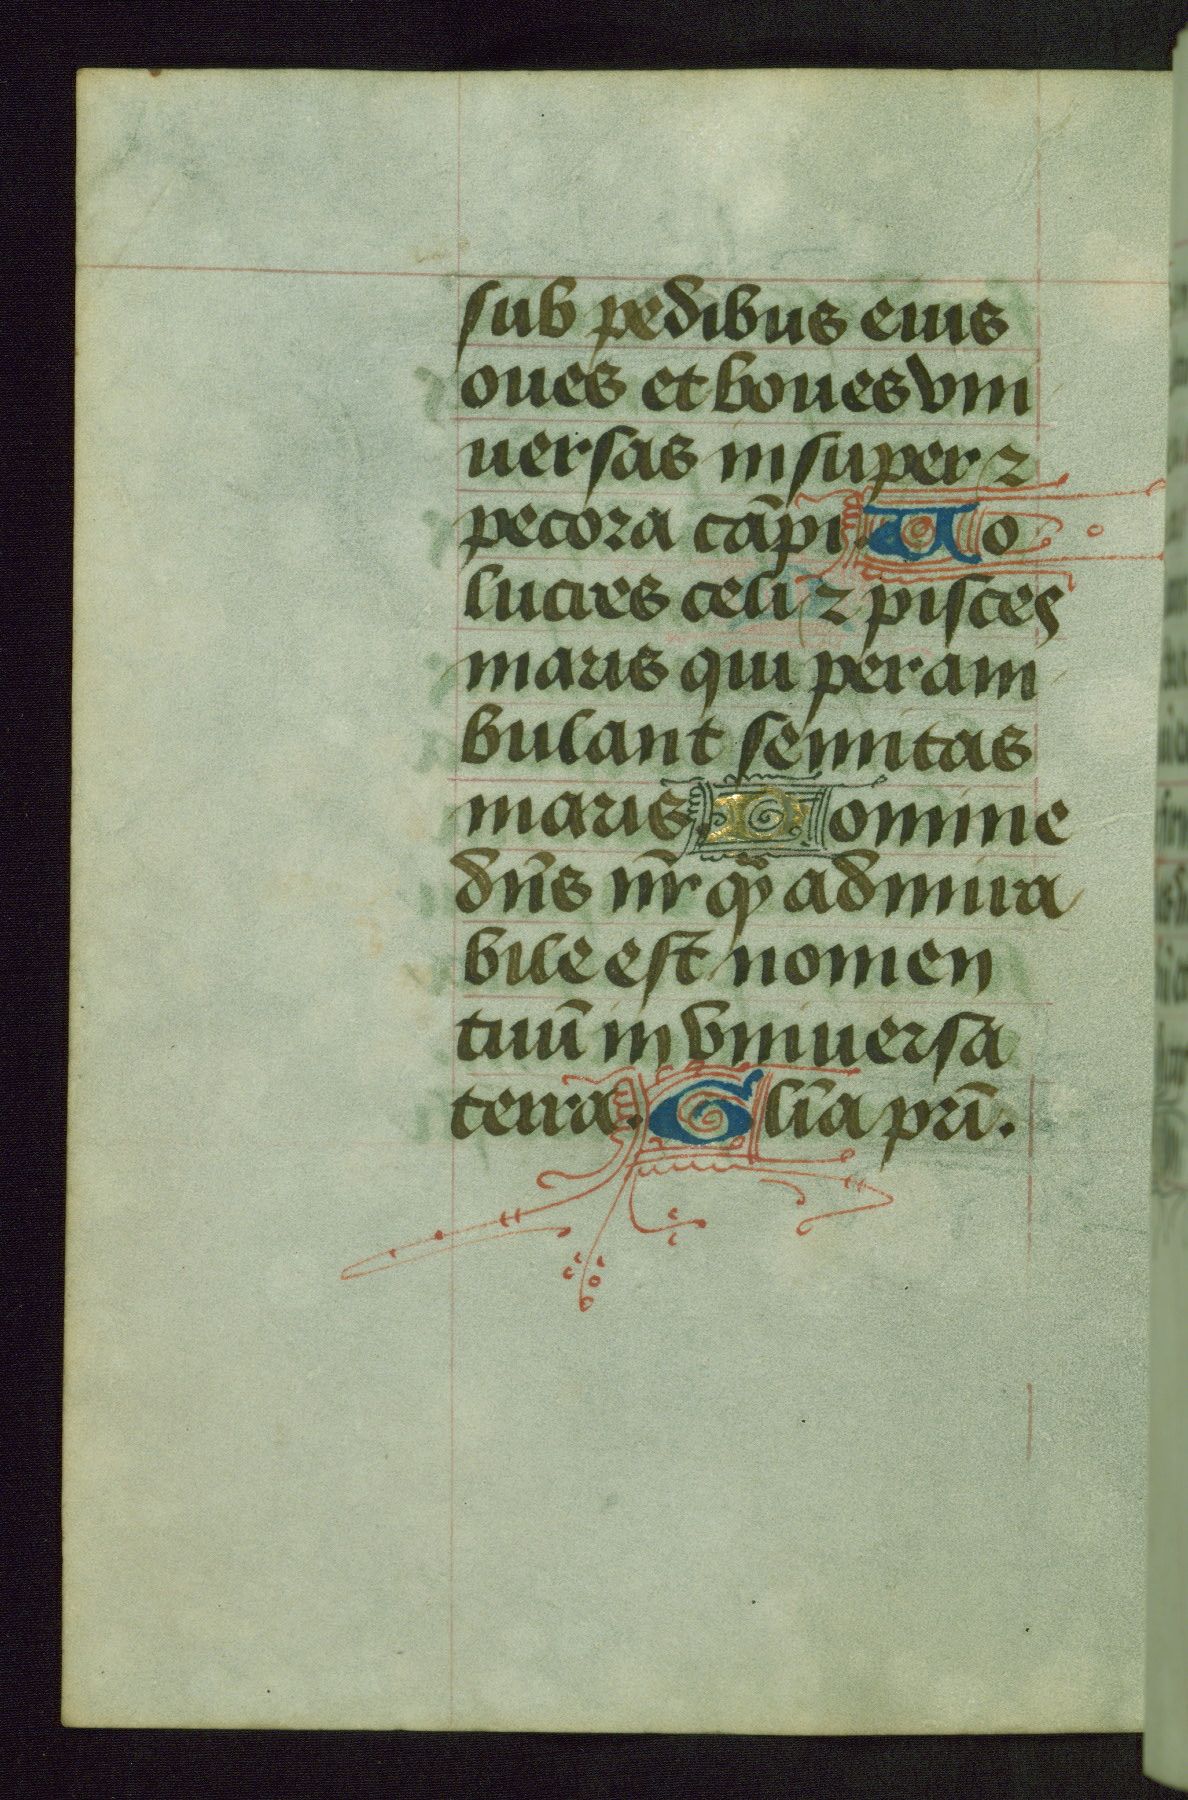 sub pedibus eius
oues et boues vni
uersas insuper ⁊
pecora cāpi. Uo
lucres celi ⁊ pisces
maris qui peram
bulant semitas
maris. Domine
dn̄s nr̄ qͣ admira
bile est nomen
tuū in vniuersa
terra. Glīa pr̄i.